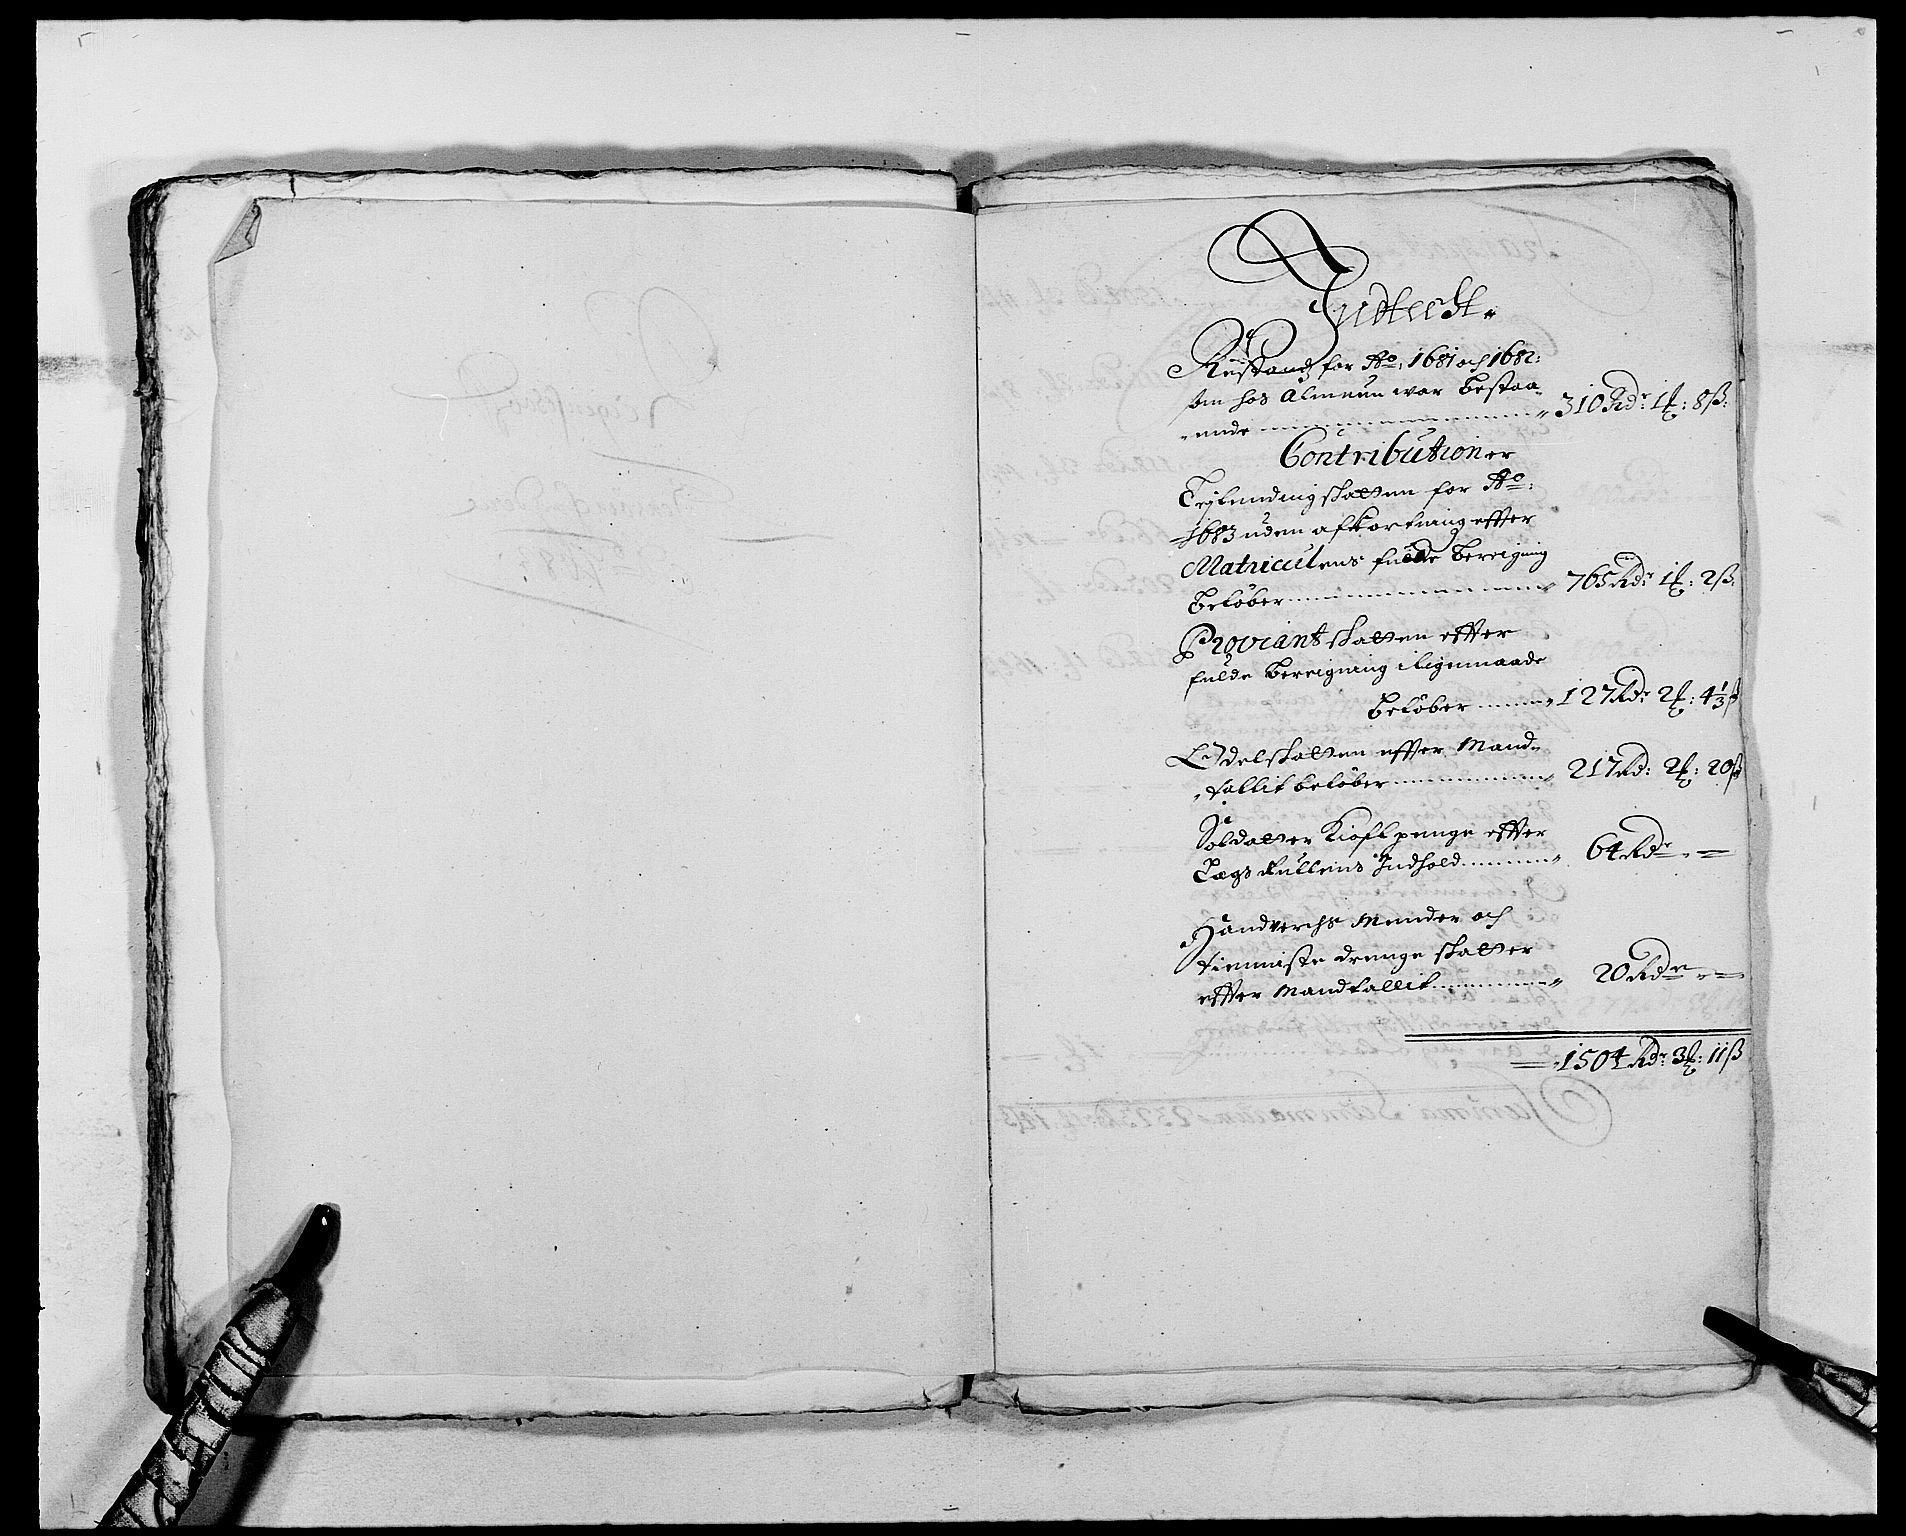 Indtecht.
Restands for Ao. 1681 och 1682:
som hos Almuen war Bestaa-
ende 310 Rdr: 1 ℔: 8 ß:
Contributioner
Tejlendingskatten for Ao:
1683 uden afkortning effter
Matriculens fulde Bereigning
Beløber 765 Rdr 1 ℔: 2 ß:
Proviantskatten effter
fulde Bereigning i ligemaade
Beløber 127 Rdr 2 ℔: 4 1/3 ß
Odelskatten effter Mand-
tallit beløber 217 Rd: 2 ℔: 20 ß
Soldatter Kiofl penge effter
Lægs Rullens Indhold 64 Rdr - =
Handverchs Mender och
tienniste drenge skatter
effter Mandtallit 20 Rdr - =
1504 Rdr 3 ℔: 11 ß